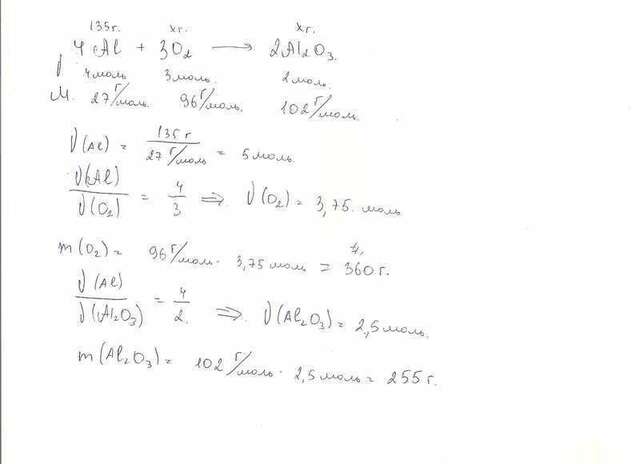 135г. xг. xг.
4Al + 3O₂ ⟶ 2Al₂O₃.
ν 4моль 3моль 2моль.
M. 27г/моль. 96г/моль. 102г/моль.
ν(Al) = 135г / 27г/моль = 5моль.
ν(Al) / ν(O₂) = 4/3 ⇒ ν(O₂) = 3,75. моль
m(O₂) = 96г/моль · 3,75моль = 360г.
ν(Al) / ν(Al₂O₃) = 4/2. ⇒ ν(Al₂O₃) = 2,5моль.
m(Al₂O₃) = 102г/моль · 2,5моль = 255г.